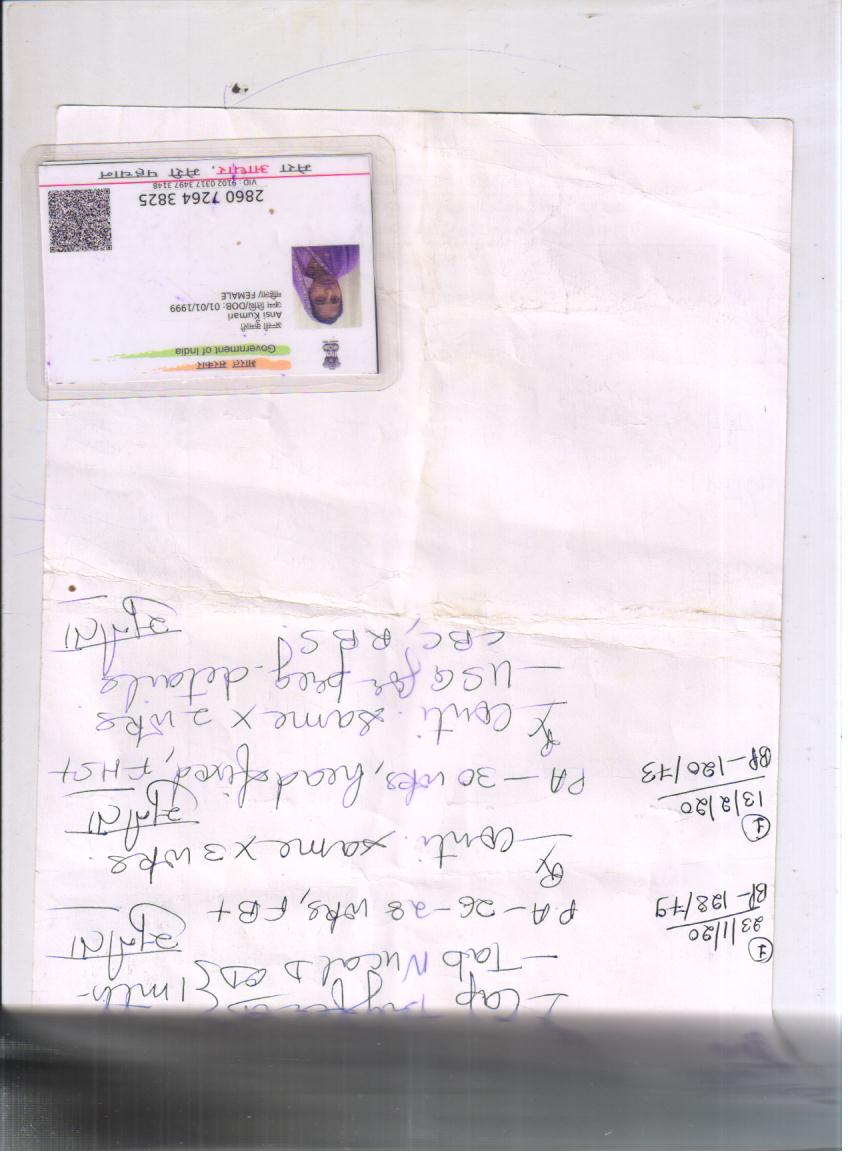 - Cap OD } 1 mth
- Tab Nucal D OD
① 23/1/20
BP - 128/79
PA - 26-28 wks, FB+
Rx
- Conti. same x 3 wks.
① 13/2/20
BP - 120/73
PA - 30 wks, head fixed, FHS+
Rx
- Conti. same x 2 wks.
- USG for preg. details
CBC, RBS
भारत सरकार
Government of India
अन्सी कुमारी
Ansi Kumari
जन्म तिथि/DOB: 01/01/1999
महिला/ FEMALE
2860 7264 3825
VID : 9102 0317 3497 3148
मेरा आधार, मेरी पहचान